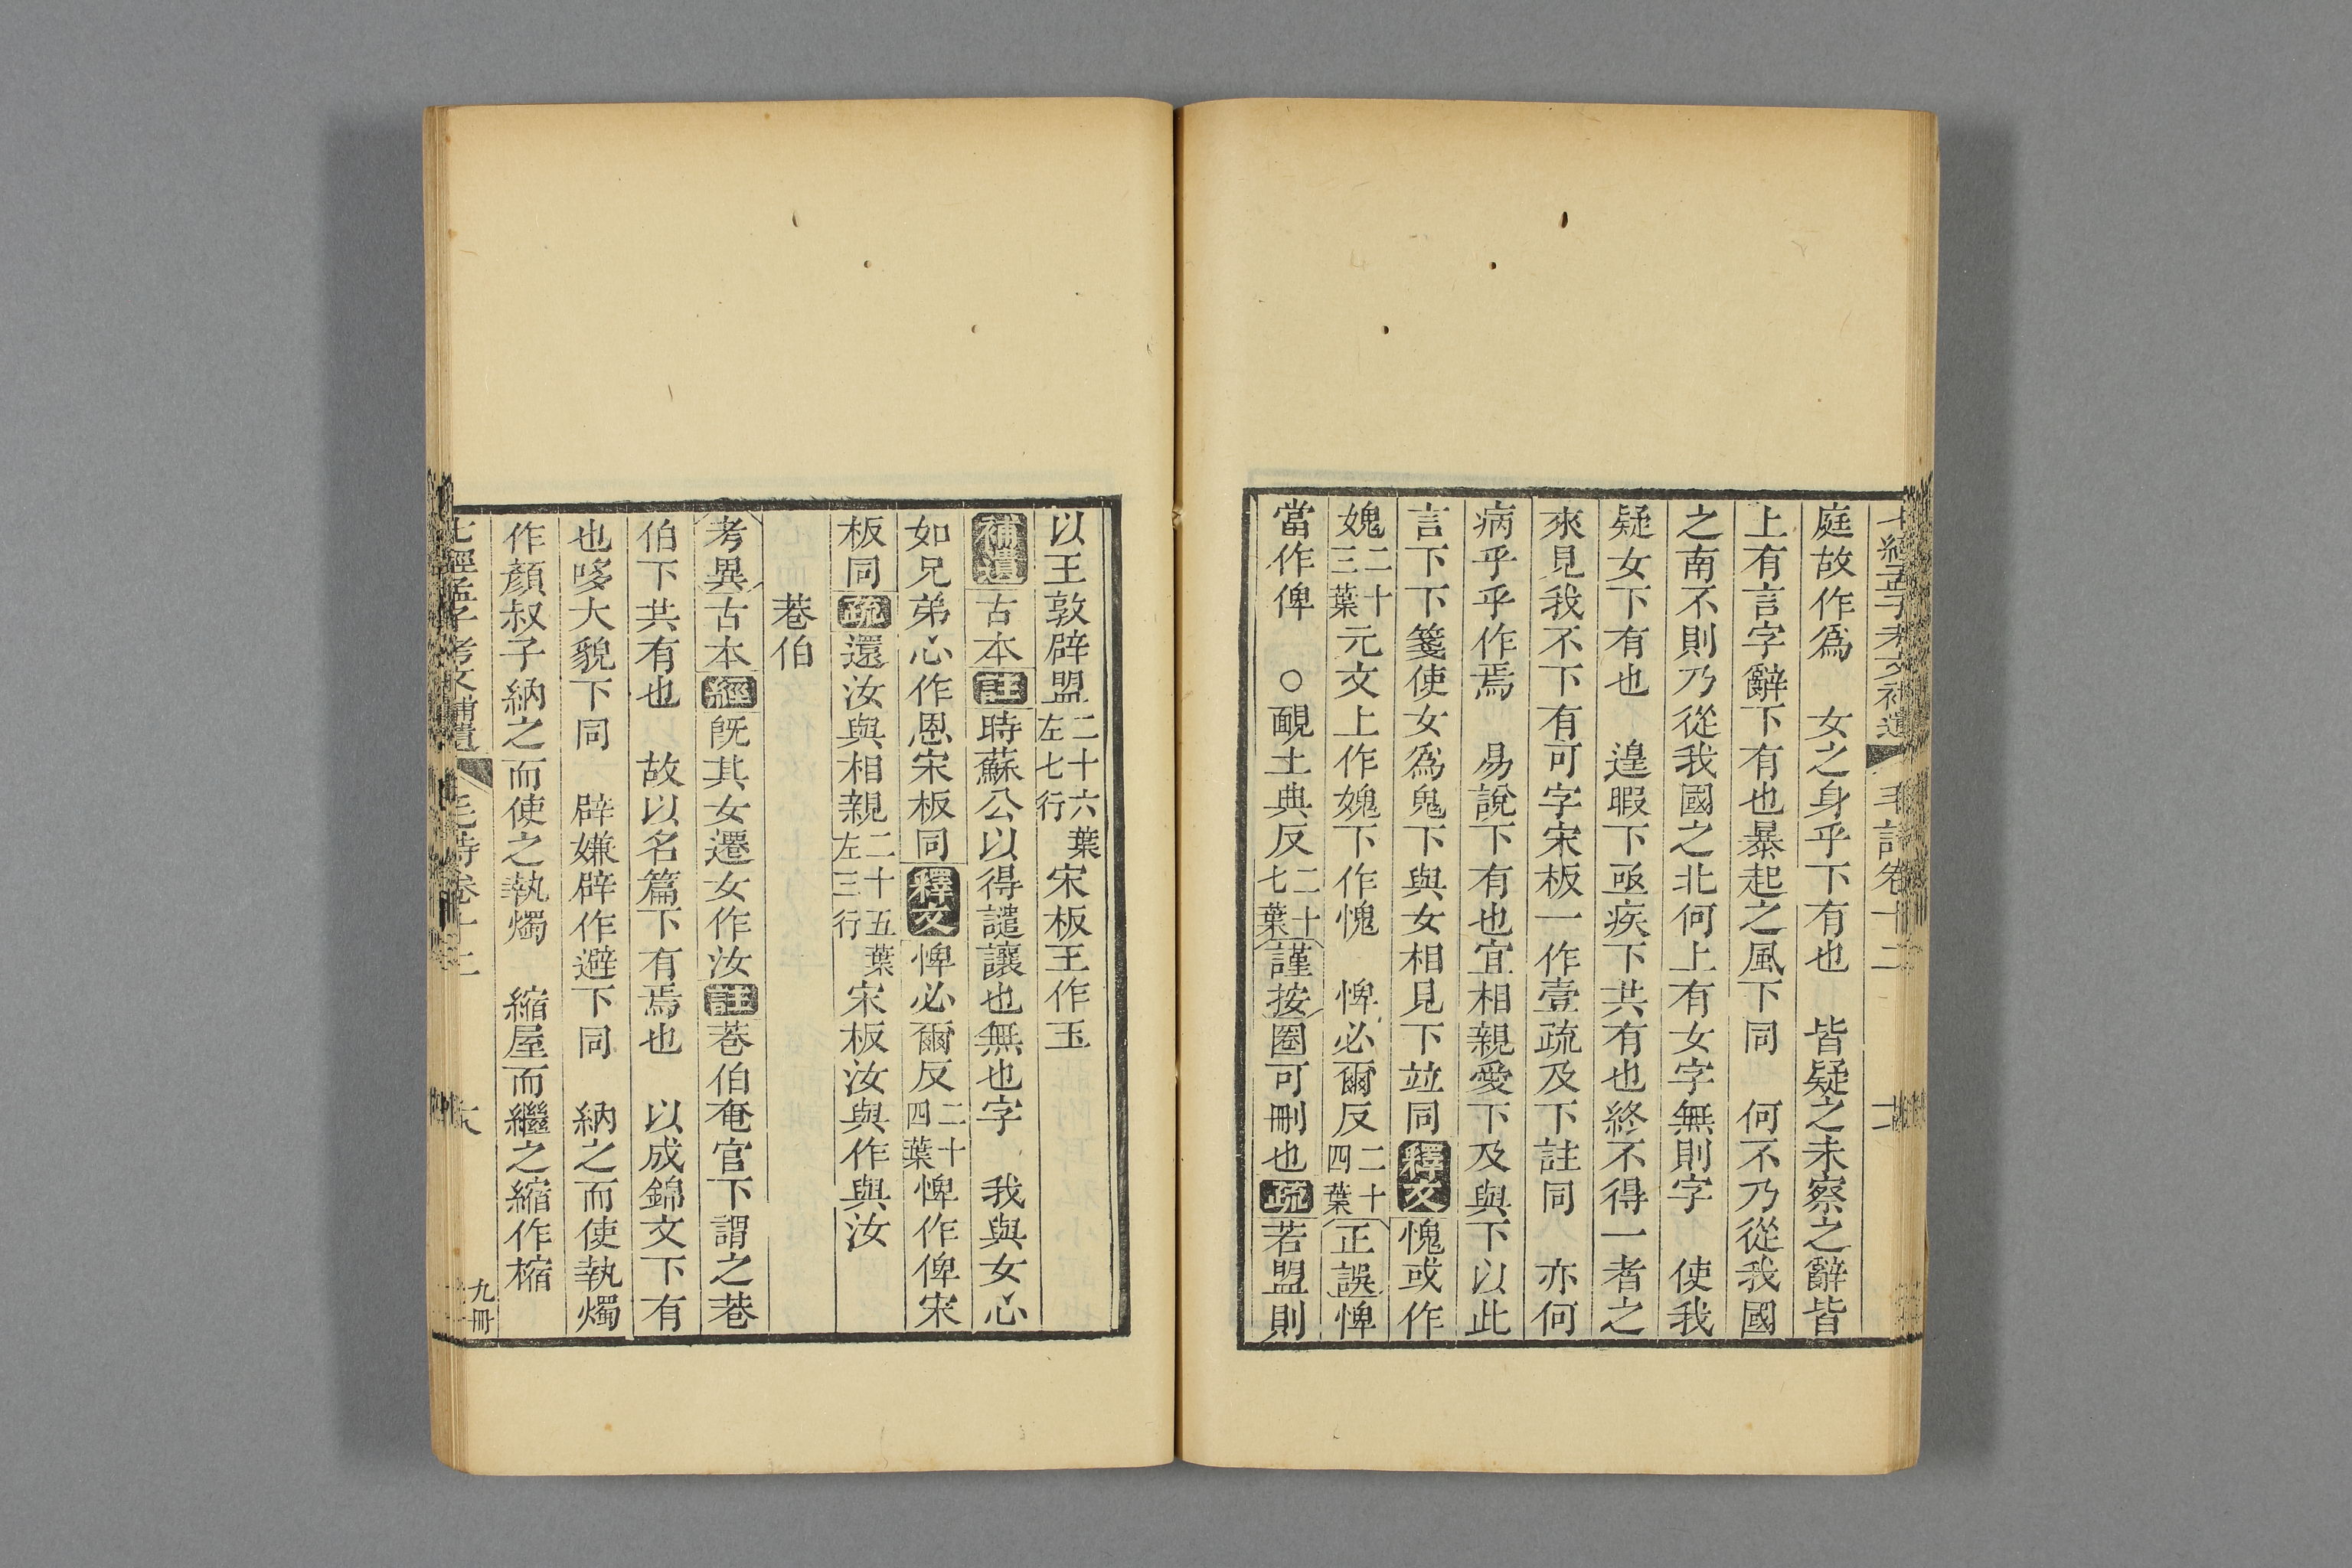 庭故作爲　女之身乎下有也　皆疑之未察之辭皆
上有言字辭下有也暴起之風下同　何不乃從我國
之南不則乃從我國之北何上有女字無則字　使我
疑女下有也　遑暇下亟疾下共有也終不得一者之
來見我不下有可字宋板一作壹疏及下註同　亦何
病乎乎作焉　易說下有也宜相親愛下及與下以此
言下下箋使女爲鬼下與女相見下竝同釋文愧或作
媿二十三葉元文上作媿下作愧　俾必爾反二十四葉正誤俾
當作俾　○靦土典反二十七葉謹按圈可刪也疏若盟則
以王敦辟盟二十六葉左七行宋板王作玉
補遺古本註時蘇公以得譴讓也無也字　我與女心
如兄弟心作恩宋板同釋文俾必爾反二十四葉俾作俾宋
板同疏還汝與相親二十五葉左三行宋板汝與作與汝
巷伯
考異古本經旣其女遷女作汝註巷伯奄官下謂之巷
伯下共有也　故以名篇下有焉也　以成錦文下有
也哆大貌下同　辟嫌辟作避下同　納之而使執燭
作顏叔子納之而使之執燭　縮屋而繼之縮作樎
七經孟子考文補遺　毛詩卷十二
九冊